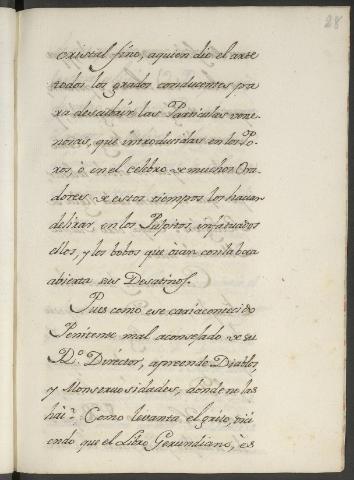 28
cristal fino, aquien dió el arte
todos los grados conducentes pa
ra descubrir las Particulas vene
nosas, que introducidas en los Po-
ros, ò en el celebro de muchos Ora
dores de estos tiempos los hacian
delirar en los Pulpitos, infatuados
ellos, y los bobos que oían con la boca
abierta sus Desatinos.
Pues como ese cariacontecido
Penitente mal aconsejado de su
R.º Director, aprende Diablos,
y Monstruosidades, donde no las
hái? Como levanta el grito, dici
endo que el Libro Gerundiano, es